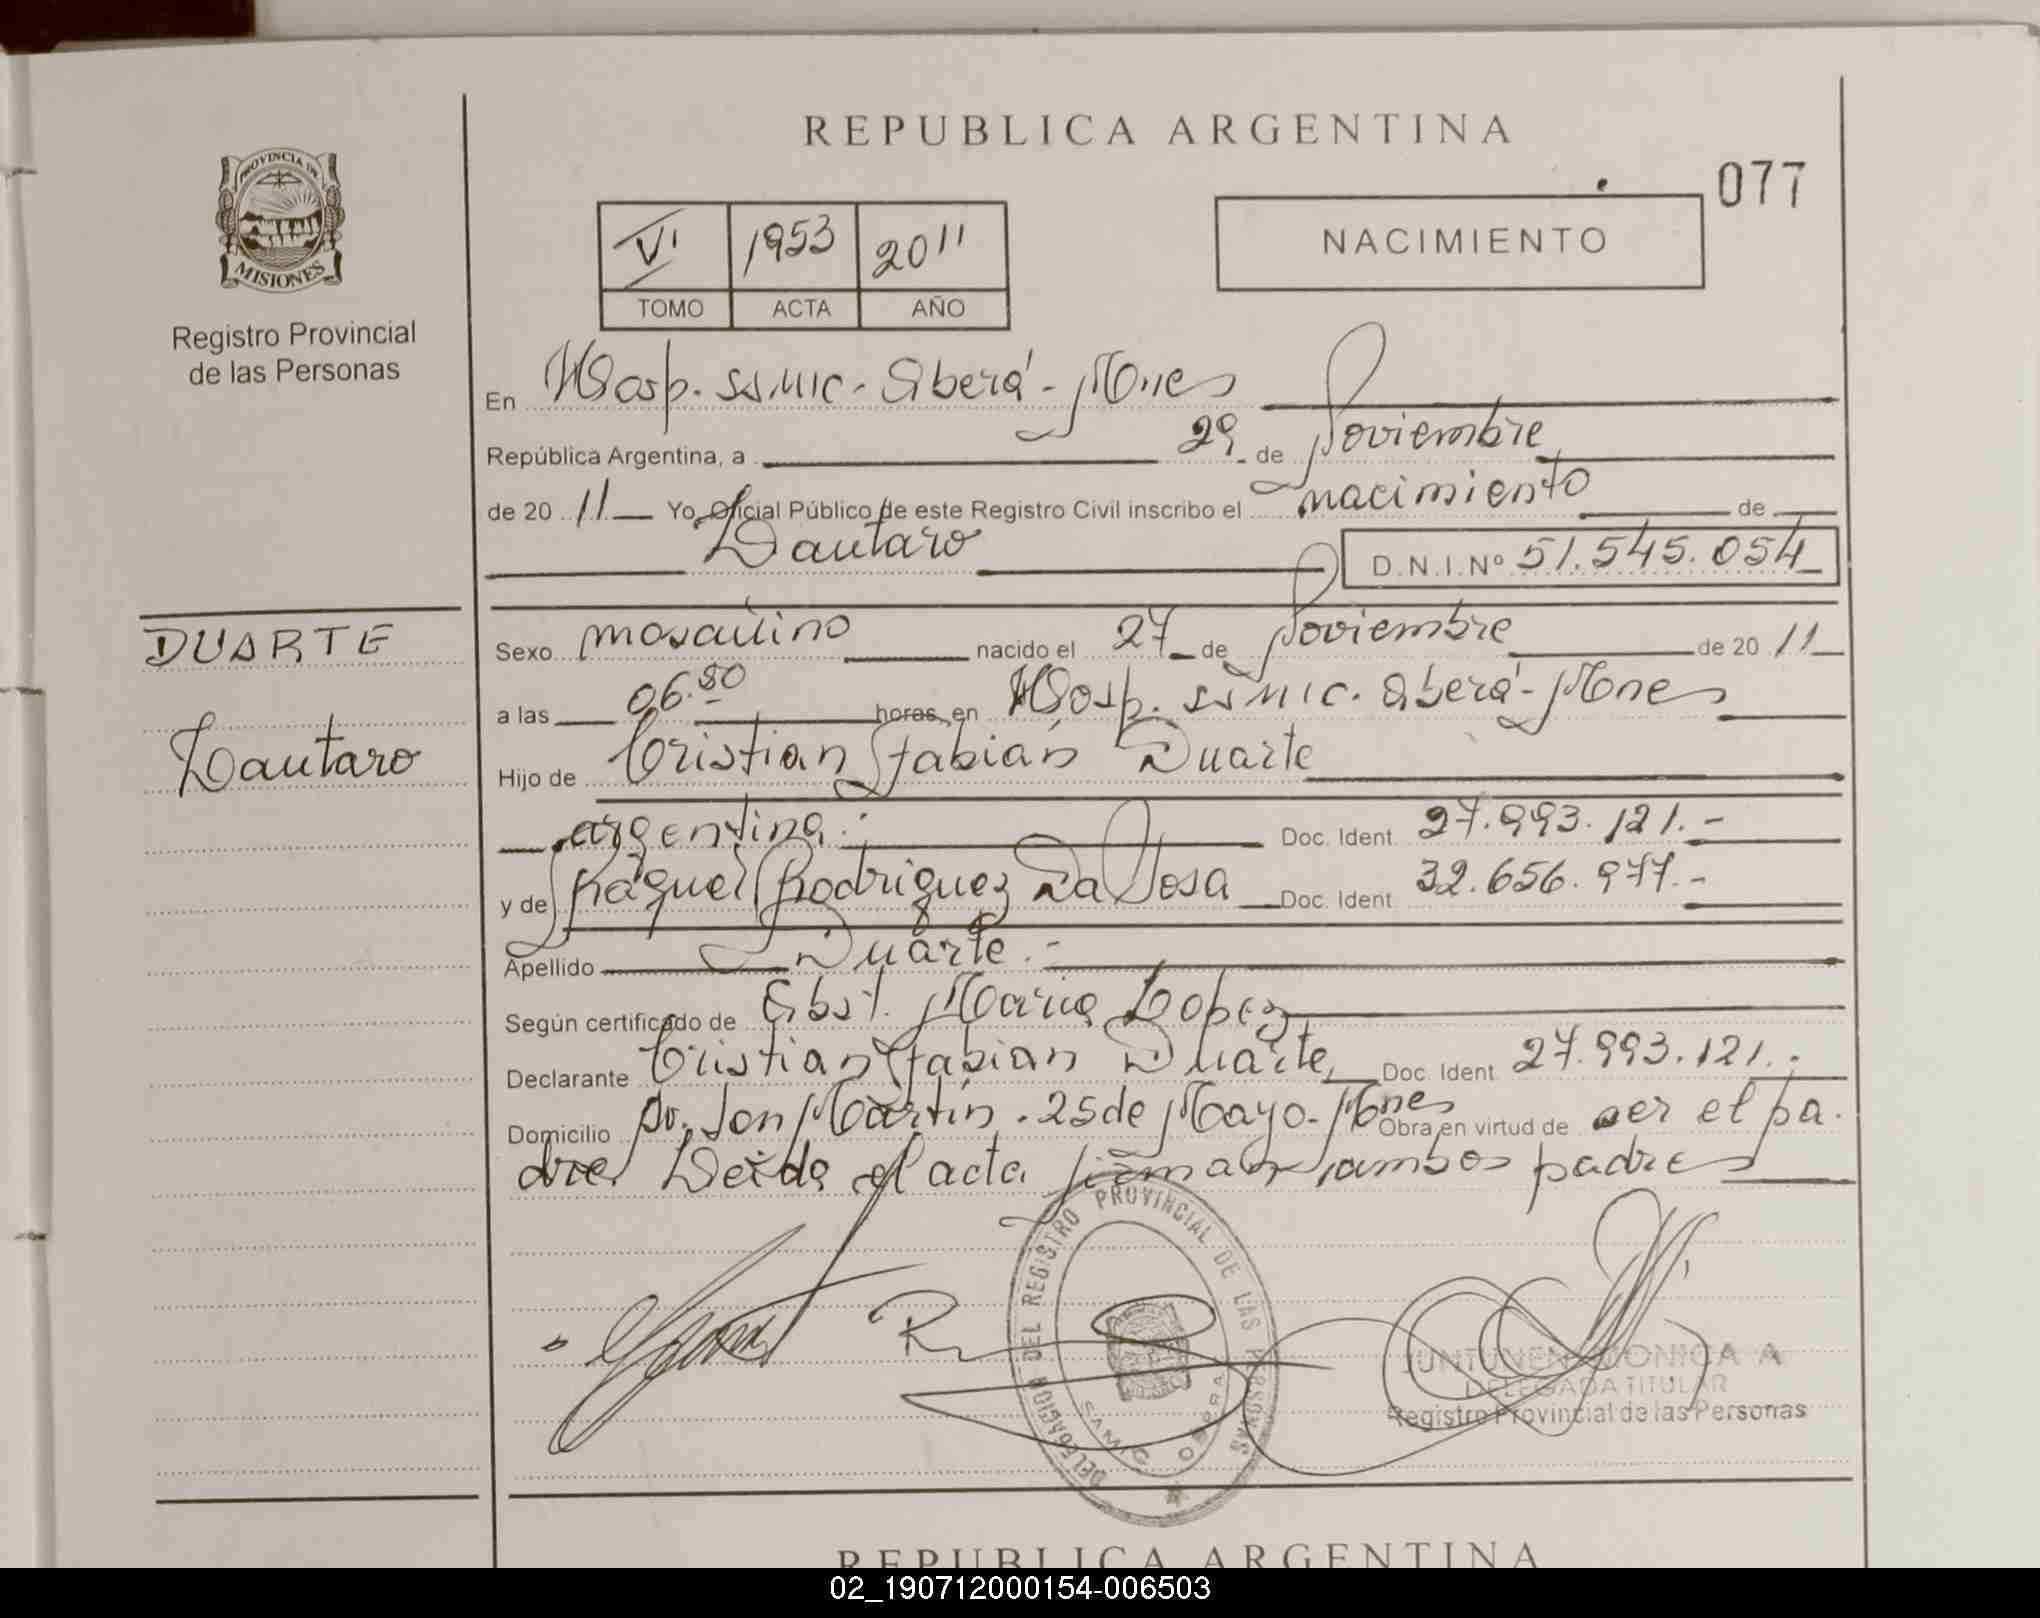 REPUBLICA ARGENTINA
077
PROVINCIA DE
MISIONES
Registro Provincial
de las Personas
VI 1953 2011
TOMO ACTA AÑO
NACIMIENTO
En Hosp. SAMIC - Oberá - Mnes
República Argentina, a 29 de Noviembre
de 20 11 Yo, Oficial Público de este Registro Civil inscribo el nacimiento de
Lautaro
D.N.I.Nº 51.545.054
DUARTE
Lautaro
Sexo masculino nacido el 27 de Noviembre de 20 11
a las 06.30 horas, en Hosp. SAMIC. Oberá - Mnes
Hijo de Cristian Fabian Duarte
argentina.- Doc. Ident 27.993.121.-
y de Raquel Rodriguez Da Rosa Doc. Ident 32.656.977.-
Apellido Duarte.-
Según certificado de Obst. Maria Lopez
Declarante Cristian Fabian Duarte, Doc. Ident 27.993.121.-
Domicilio Av. San Martin. 25 de Mayo - Mnes Obra en virtud de ser el pa-
dre Leida el acta firman ambos padres
DELEGACION DEL REGISTRO PROVINCIAL DE LAS PERSONAS
SAMIC OBERA
JUNTUNEN MONICA A
DELEGADA TITULAR
Registro Provincial de las Personas
REPUBLICA ARGENTINA
02_190712000154-006503